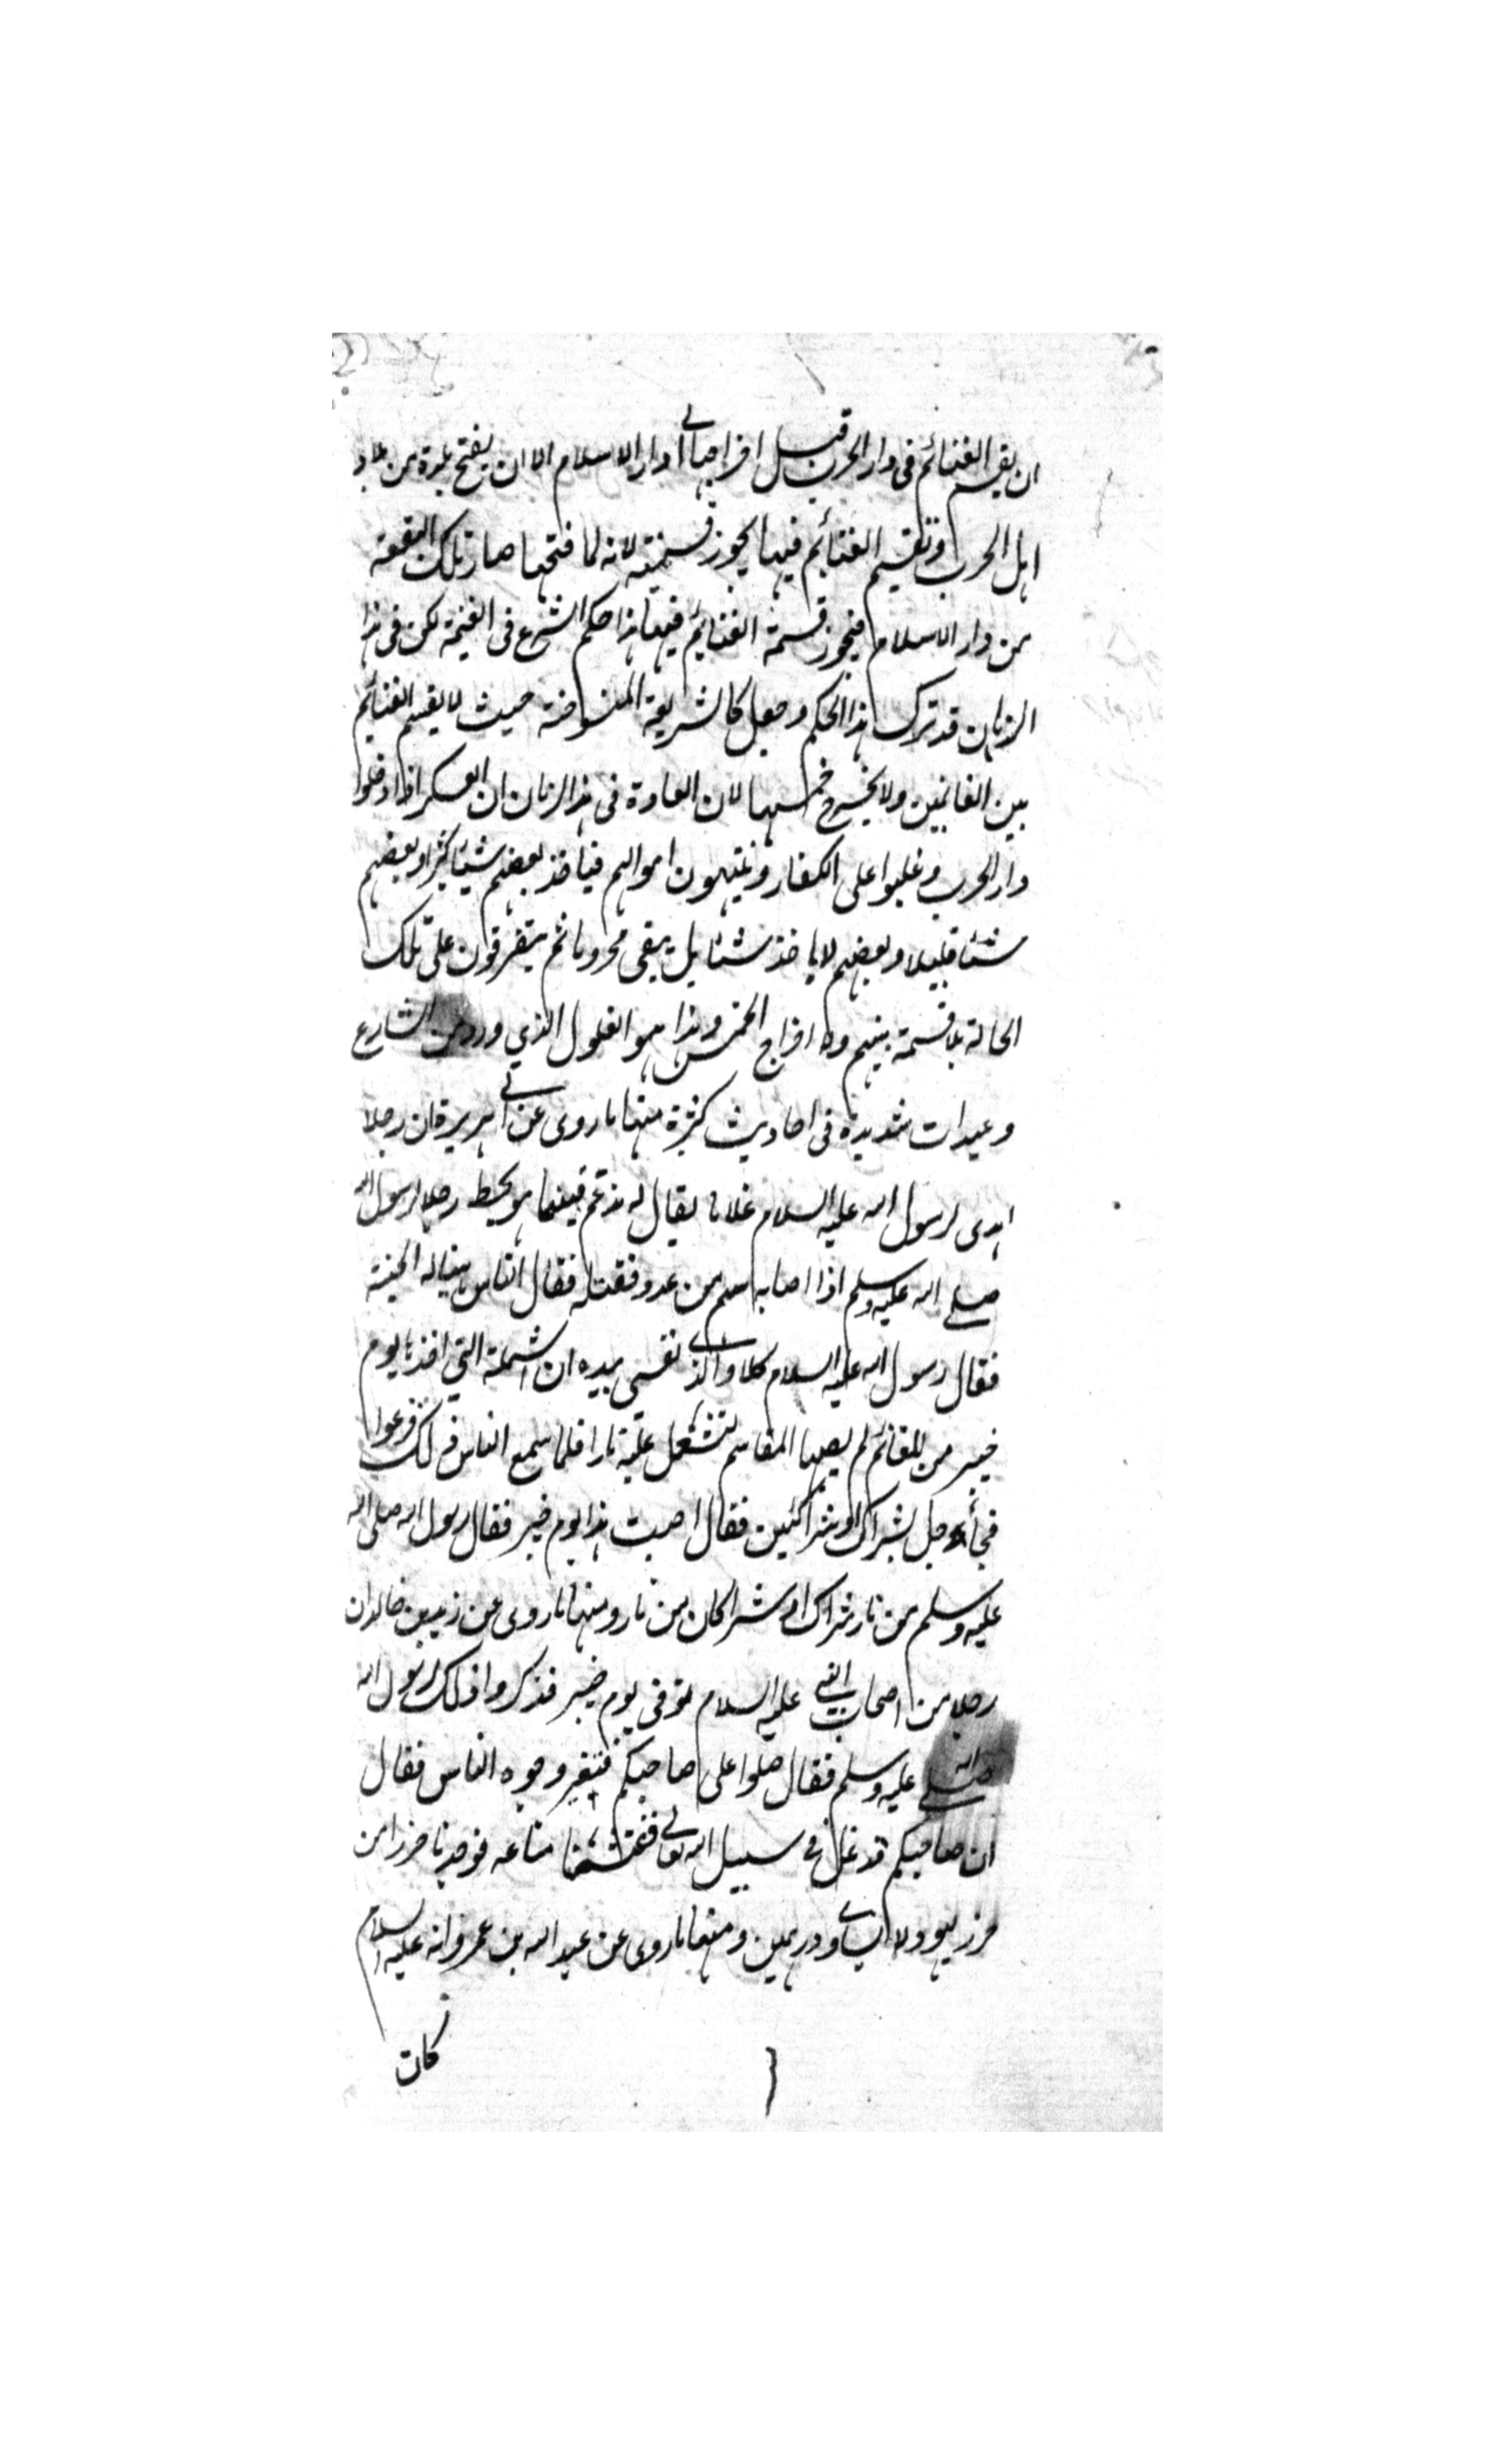 ان يقسم الغنائم فى دار الحرب قبل اخراجها الى دار الاسلام الا ان يفتح بلدة من بلاد
اهل الحرب وتقسيم الغنائم فيها يجوز قسمته لانه لما فتحها صار تلك البقعة
من دار الاسلام فيجوز قسمة الغنايم فيها هذا حكم الشرع فى الغنيمة لكن فى هذا
الزمان قد ترك هذا الحكم وجعل كالشريعة المنسوخة حيث لا يقسم الغنائم
بين الغانمين ولا يخرج خمسها لان العادة فى هذا الزمان ان العسكر اذا دخلوا
دار الحرب وغلبوا على الكفار وينتهبون اموالهم فياخذ بعضهم شيئا كثيرا وبعضهم
شئا قليلا وبعضهم لا ياخذ شئا بل يبقى محروما ثم يتفرقون على تلك
الحالة بلا قسمة بينهم ولا اخراج الخمس وهذا هو الغلول الذي ورد من الشارع
وعيدات شديدة فى احاديث كثيرة منها ما روى عن ابى هريرة ان رجلا
اهدى لرسول الله عليه السلام غلاما يقال له مدعم فبينما هو يحط رحلا لرسول الله
صلى الله عليه وسلم اذا اصابه سهم من عدو فقتله فقال الناس هنيا له الجنة
فقال رسول الله عليه السلام كلا والذى نفسى بيده ان الشملة التي اخذها يوم
خيبر من المغانم لم يصبها المقاسم لتشتعل عليه نارا فلما سمع الناس ذلك فزعوا
فجأ رجل بشراك او شراكين فقال اصبت هذا يوم خيبر فقال رسول الله صلى الله
عليه وسلم من نار شراك او شراكان من نار ومنها ما روى عن زيد بن خالد ان
رجلا من اصحاب النبى عليه السلام توفى يوم خيبر فذكروا ذلك لرسول الله
صلى الله عليه وسلم فقال صلوا على صاحبكم فتغير وجوه الناس فقال
ان صاحبكم قد غل فى سبيل الله تعالى ففتشنا متاعه فوجدنا خرزا من
خرز يهود لا يساوى درهمين ومنها ما روى عن عبد الله بن عمرو انه عليه السلام
كان